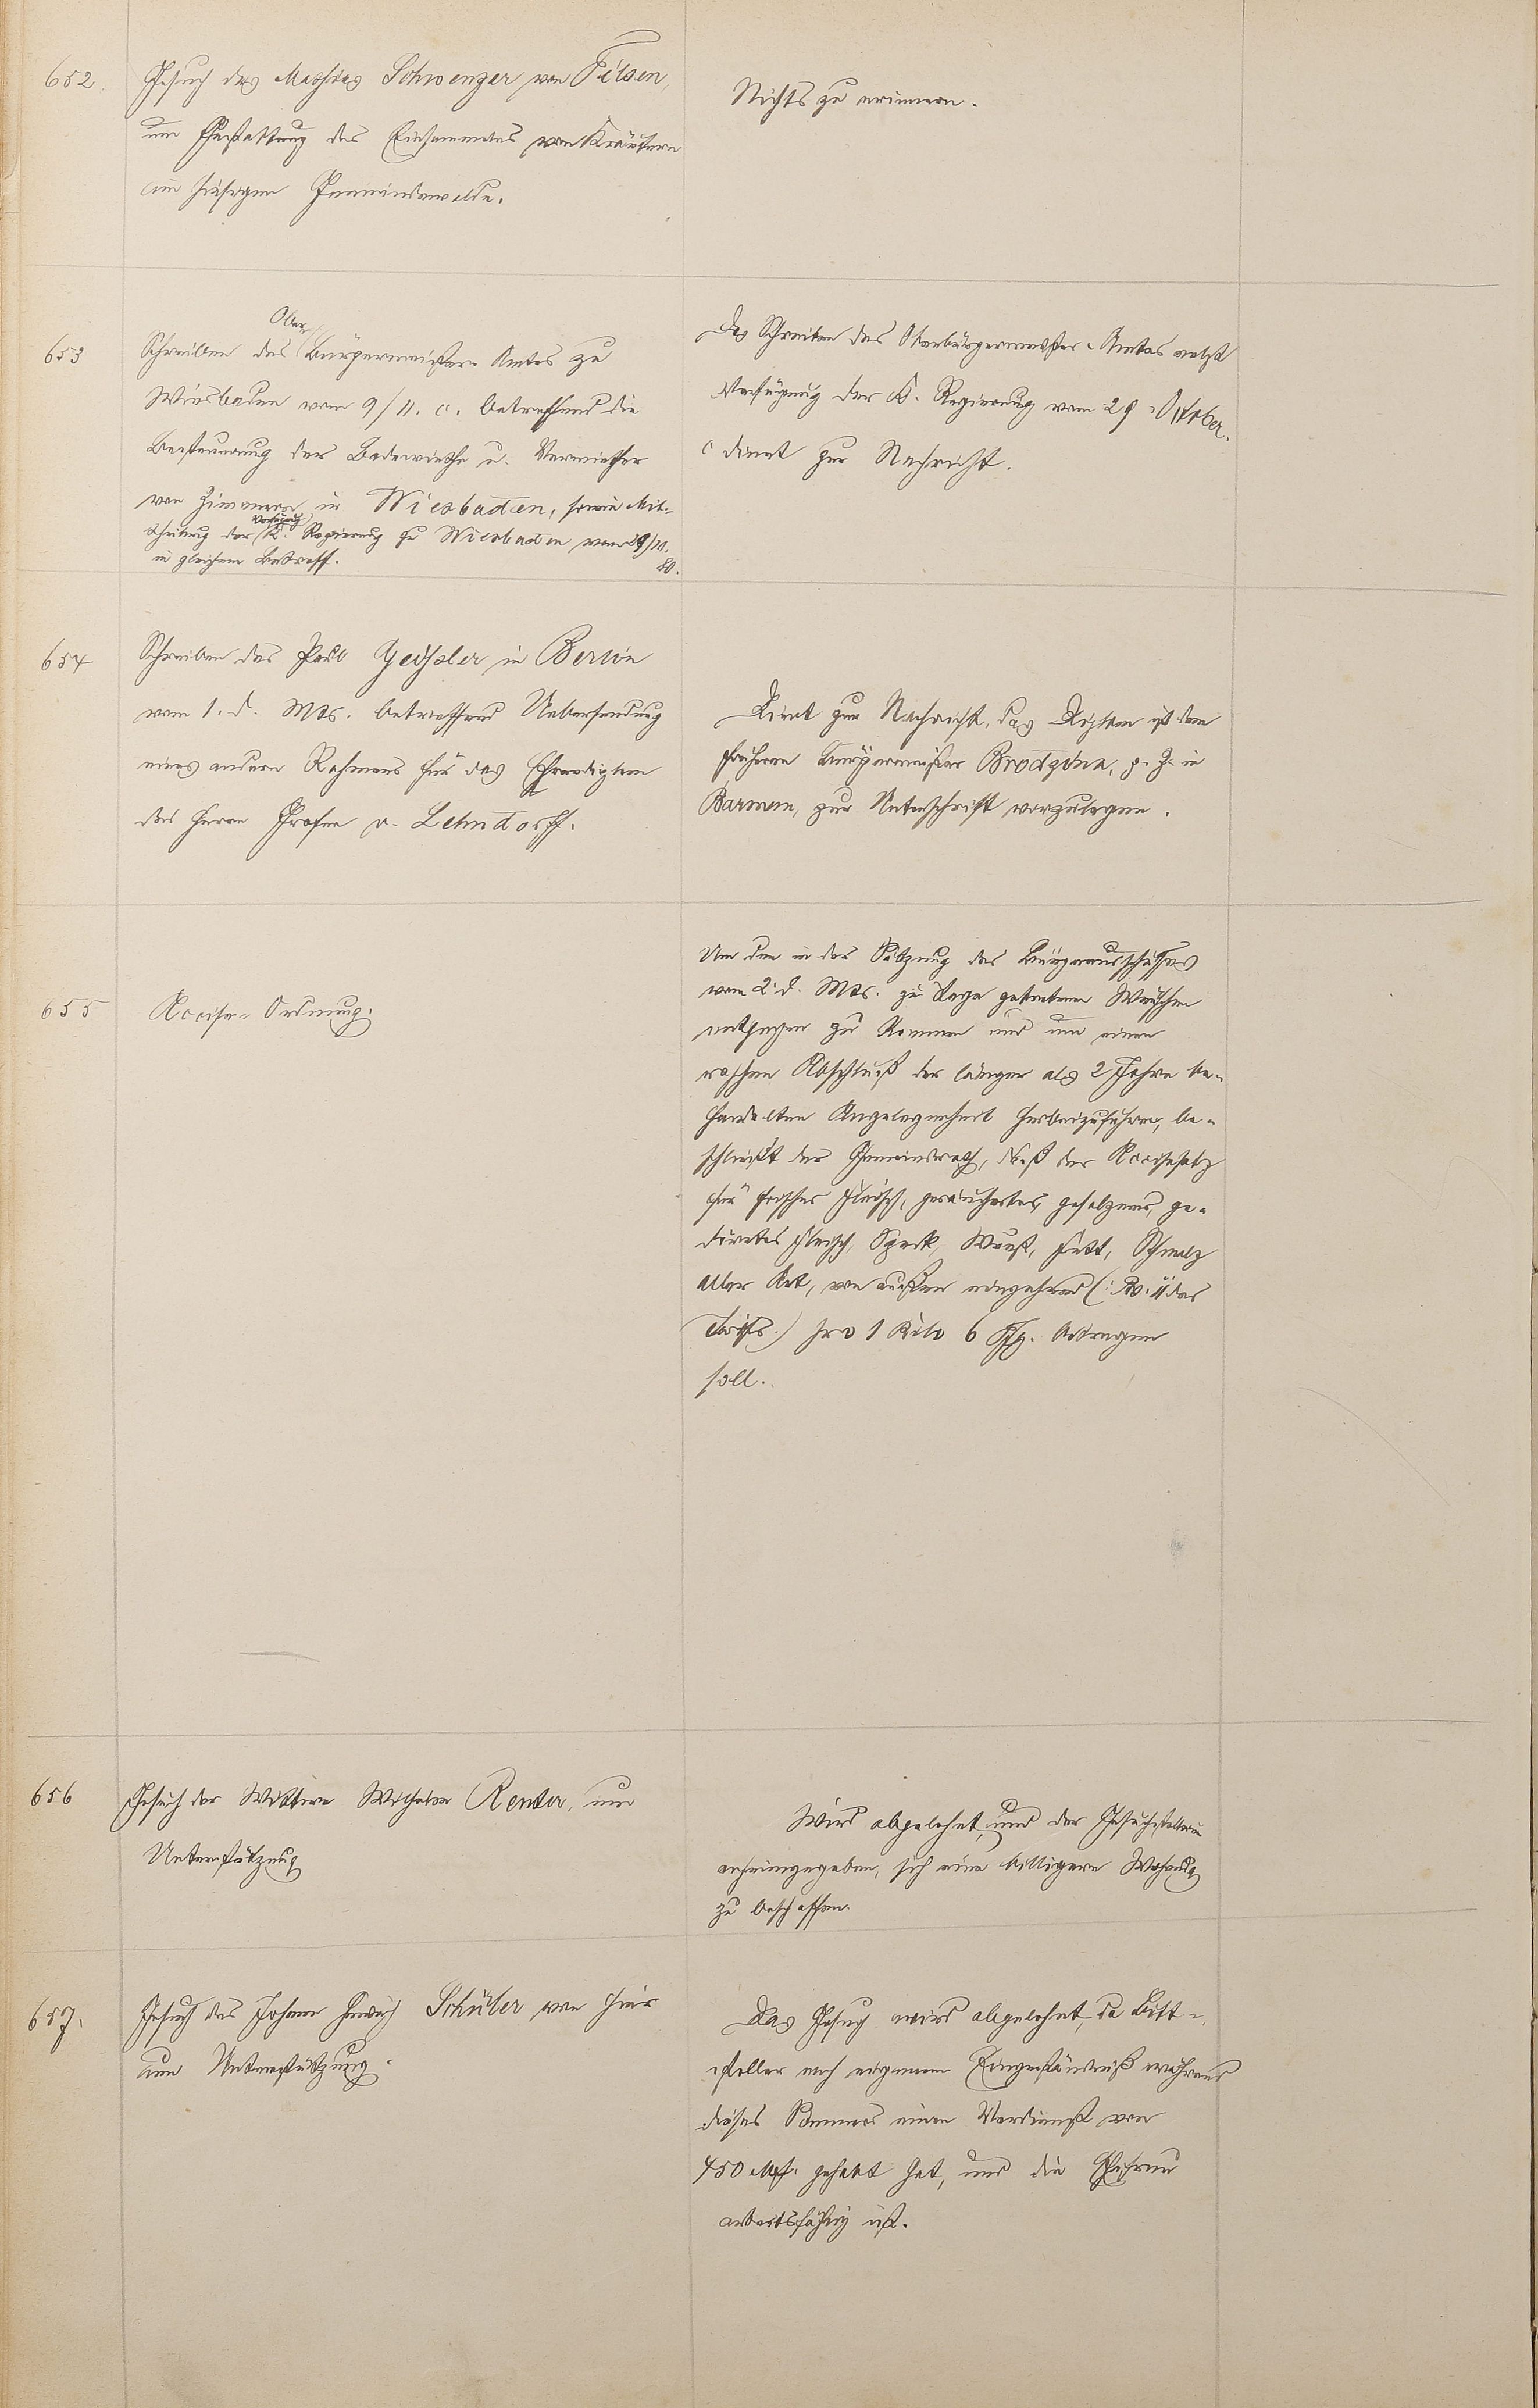 652.
Gesuch des Mathias Schwenzer von Filsen,
um Gestattung des Einsammelns von Kräutern
im hiesigen Gemeindewalde.
Nichts zu erinnern.
653
Schreiben des Ober Bürgermeister-Amtes zu
Wiesbaden vom 9/11. c. betreffend die
Besteuerung der Badewirthe u. Vermiether
von Zimmern in Wiesbaden, sowie Mit-
theilung der Verfügung K. Regierung zu Wiesbaden vom 29/10.
80.
in gleichem Betreff.
Das Schreiben des Oberbürgermeister-Amtes nebst
Verfügung der K. Regierung vom 29 Oktober
c dient zur Nachricht.
654
Schreiben des Paul Geißler in Berlin
vom 1. d. Mts. betreffend Uebersendung
eines andern Rahmens für das Ehrendiplom
des Herrn Grafen v. Lehndorff.
Dient zur Nachricht, das Diplom ist dem
früheren Bürgermeister Brodzina, z. Z. in
Barmen, zur Unterschrift vorzulegen.
655
Accise-Ordnung.
Um den in der Sitzung des Bürgerausschusses
vom 2. d. Mts. zu Tage getretenen Wünschen
entgegen zu kommen und um einen
raschen Abschluß der länger als 2 Jahre be-
handelten Angelegenheit herbeizuführen, be-
schließt der Gemeinderath, daß der Accisesatz
für frisches Fleisch, geräuchertes, gesalzenes, ge-
dörrtes Fleisch, Speck, Wurst, Fett, Schmalz
aller Art, von außen eingehend (: No. 11 des
Tarifs.) pro 1 Kilo 6 Pfg. betragen
soll.
656
Gesuch der Wittwe Wilhelm Reuter, um
Unterstützung
Wird abgelehnt, und der Gesuchstellerin
anheimgegeben, sich eine billigere Wohnung
zu beschaffen.
657.
Gesuch des Johann Heinrich Schüler von hier
um Unterstützung.
Das Gesuch wird abgelehnt, da Bitt-
steller nach eigenem Eingeständniß während
dieses Sommers einen Verdienst von
450 Mk. gehabt hat, und die Ehefrau
arbeitsfähig ist.